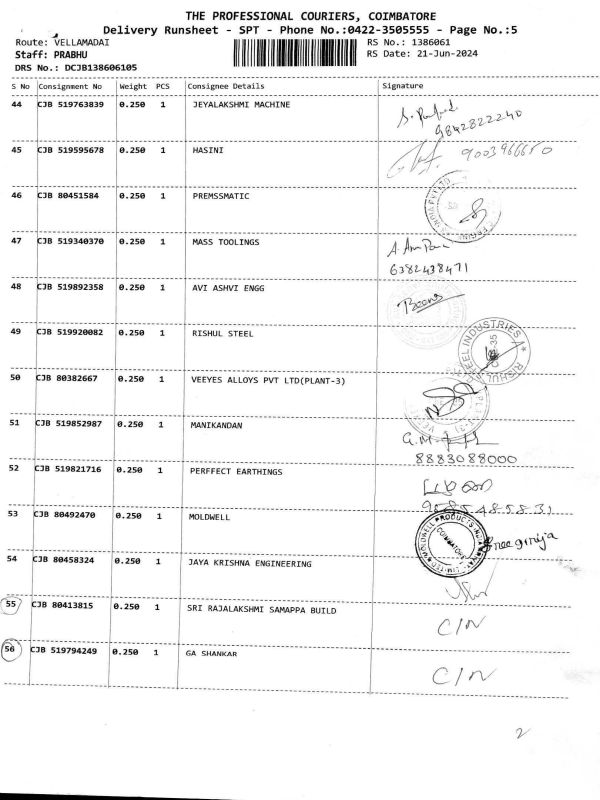 THE PROFESSIONAL COURIERS, COIMBATORE
Delivery Runsheet - SPT - Phone No.:0422-3505555 - Page No.:5
Route: VELLAMADAI RS No.: 1386061
Staff: PRABHU RS Date: 21-Jun-2024
DRS No.: DCJB138606105
S No Consignment No Weight PCS Consignee Details Signature
44 CJB 519763839 0.250 1 JEYALAKSHMI MACHINE
9842822240
45 CJB 519595678 0.250 1 HASINI 9003966650
46 CJB 80451584 0.250 1 PREMSSMATIC
47 CJB 519340370 0.250 1 MASS TOOLINGS
6382438471
48 CJB 519892358 0.250 1 AVI ASHVI ENGG
49 CJB 519920082 0.250 1 RISHUL STEEL
RISHUL STEEL INDUSTRIES
50 CJB 80382667 0.250 1 VEEYES ALLOYS PVT LTD(PLANT-3)
51 CJB 519852987 0.250 1 MANIKANDAN
8883088000
52 CJB 519821716 0.250 1 PERFFECT EARTHINGS
53 CJB 80492470 0.250 1 MOLDWELL
MOLDWELL PRODUCTS INDIA
COIMBATORE
54 CJB 80458324 0.250 1 JAYA KRISHNA ENGINEERING
55 CJB 80413815 0.250 1 SRI RAJALAKSHMI SAMAPPA BUILD C/N
56 CJB 519794249 0.250 1 GA SHANKAR C/N
2